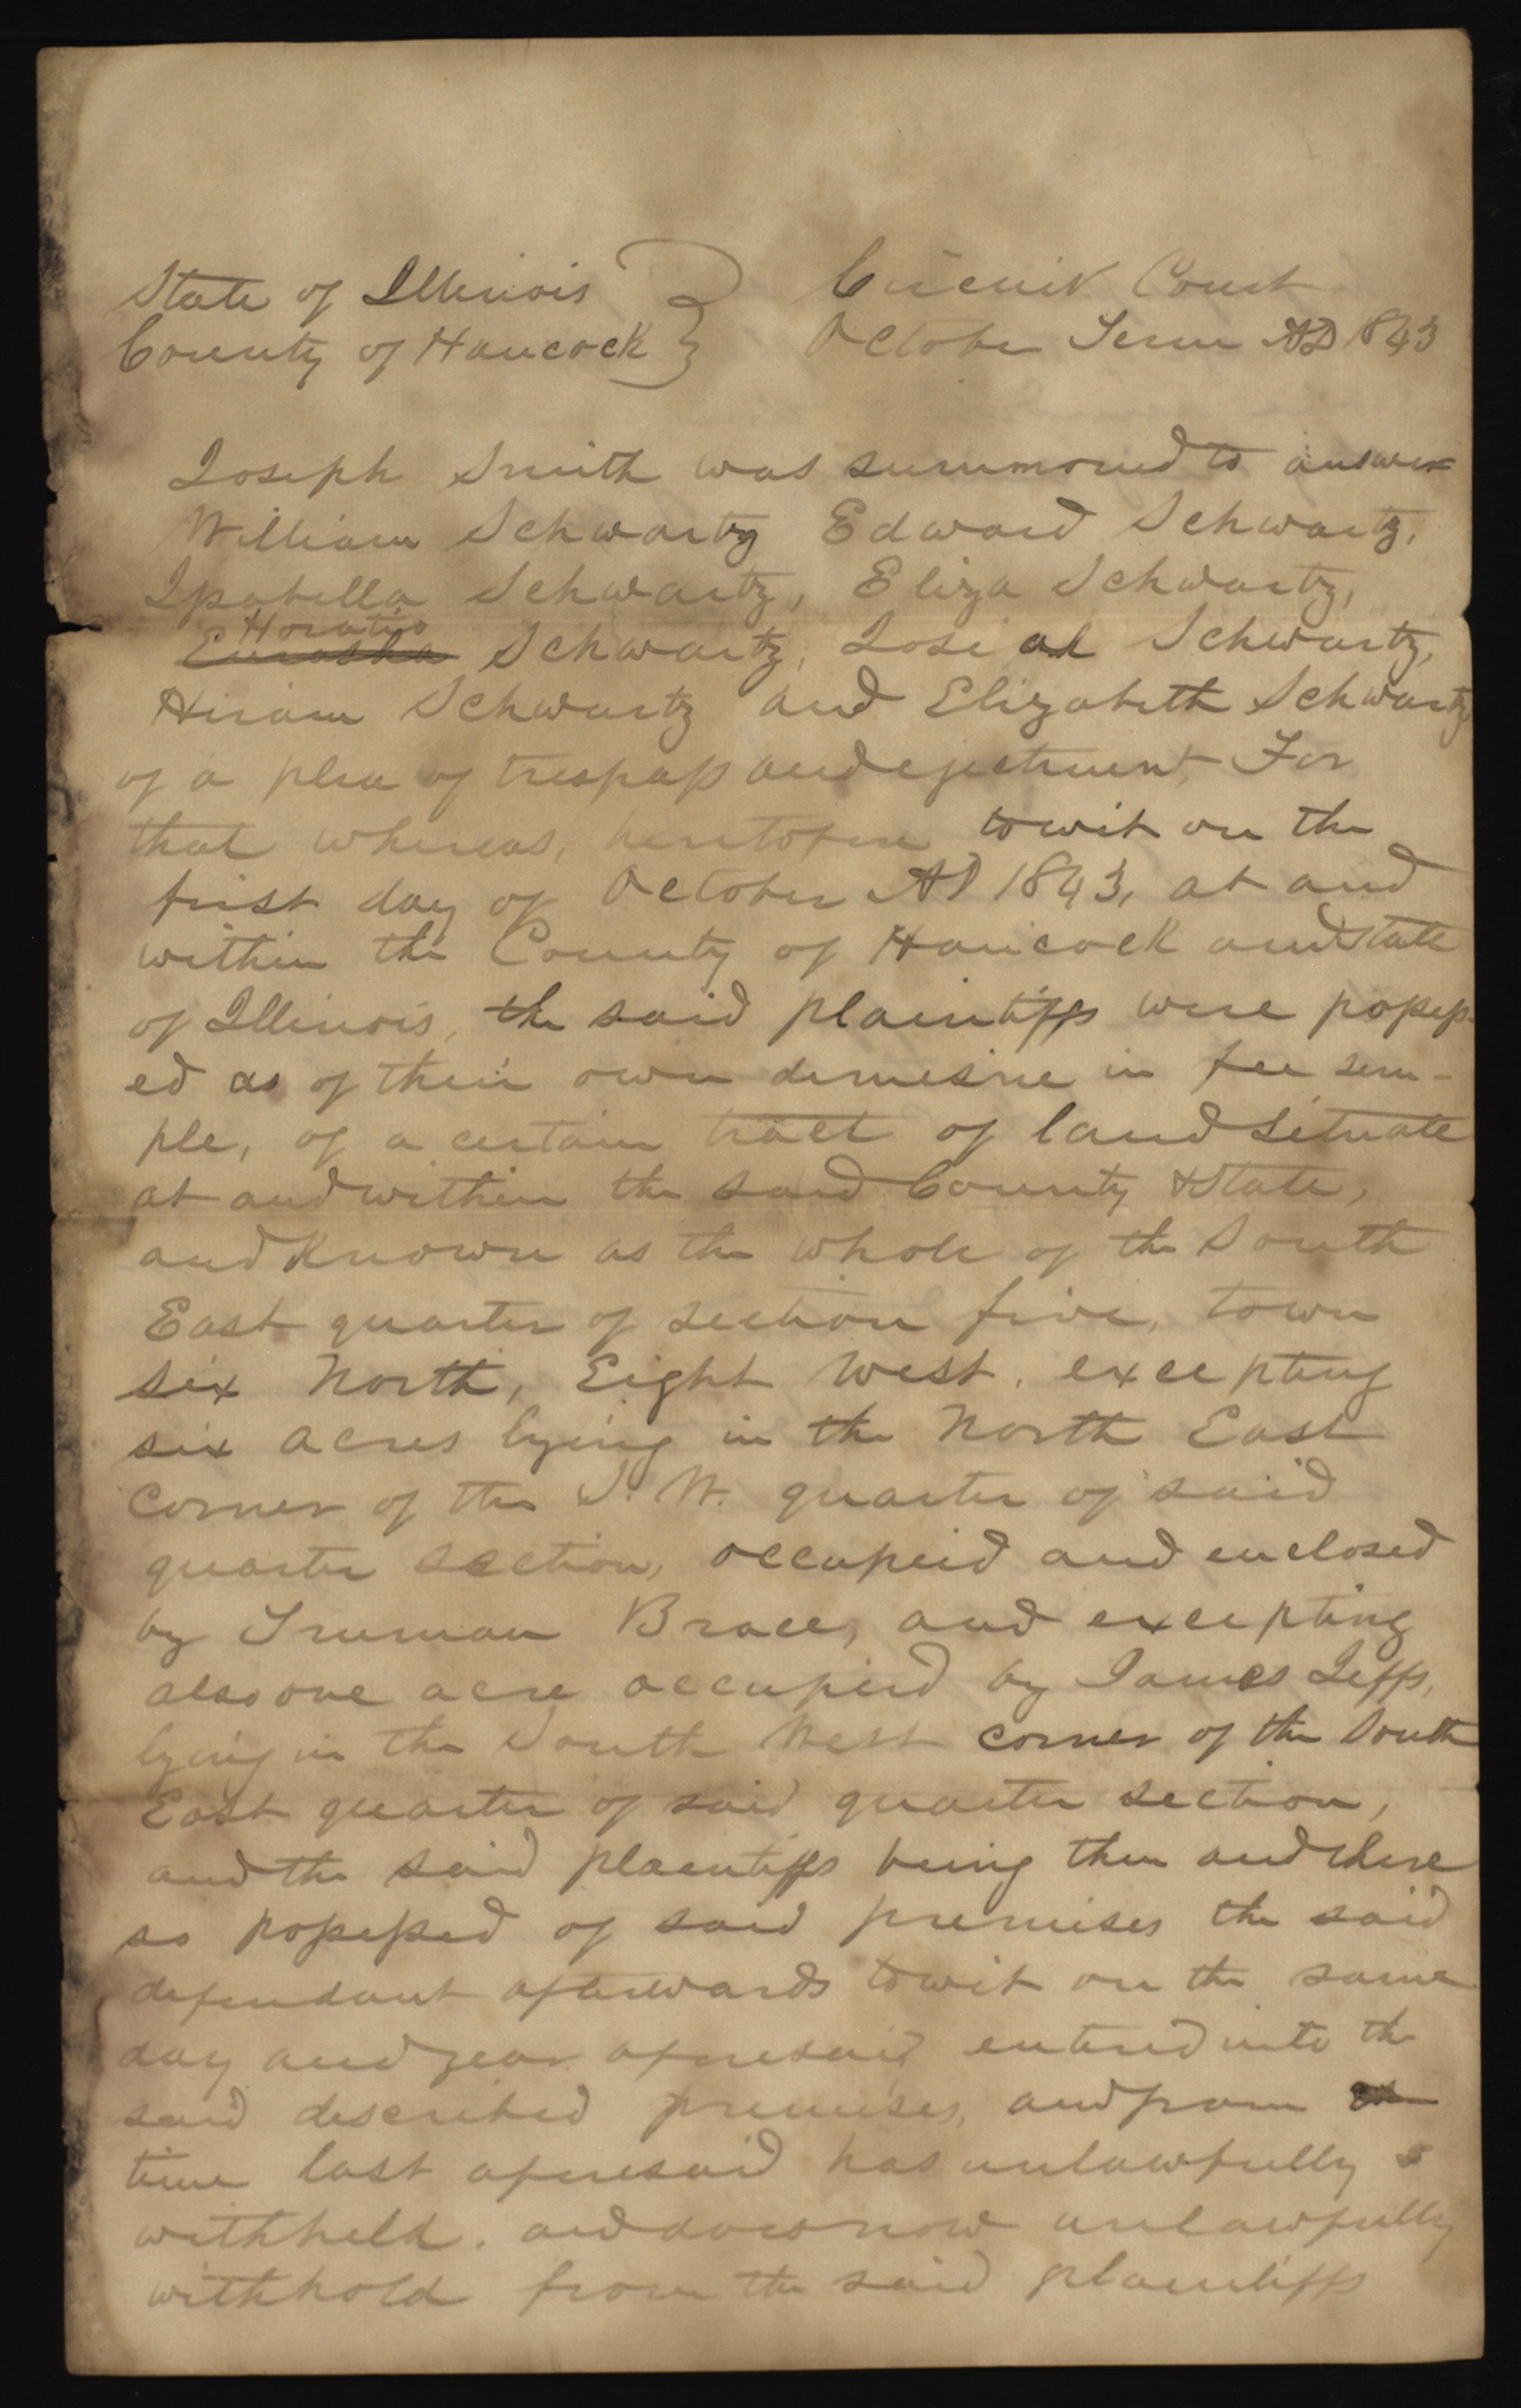 State of Illinois } Circuit Court
County of Hancock } October Term AD 1843
Joseph Smith was summoned to answer
William Schwartz Edward Schwartz,
Isabella Schwartz, Eliza Schwartz,
Horatio
Schwartz, Josiah Schwartz,
Hiram Schwartz and Elizabeth Schwartz
of a plea of trespass and ejectment For
that whereas, heretofore towit on the
first day of October AD 1843, at and
within the County of Hancock and state
of Illinois, the said plaintiffs were possess-
ed as of their own demesne in fee sim-
ple, of a certain tract of land situate
at and within the said County & State,
and known as the whole of the South
East quarter of section five, town
six North, Eight West, excepting
six acres lying in the North East
corner of the S. W. quarter of said
quarter section, occupied and enclosed
by Truman Brace, and excepting
also one acre occupied by James Jeffs,
lying in the South West corner of the South
East quarter of said quarter section,
and the said plaintiffs being then and there
so possessed of said premises the said
defendant afterwards towit on the same
day and year aforesaid entered into the
said described premises, and from
time last aforesaid has unlawfully
withheld, and does now unlawfully
withhold from the said plaintiffs